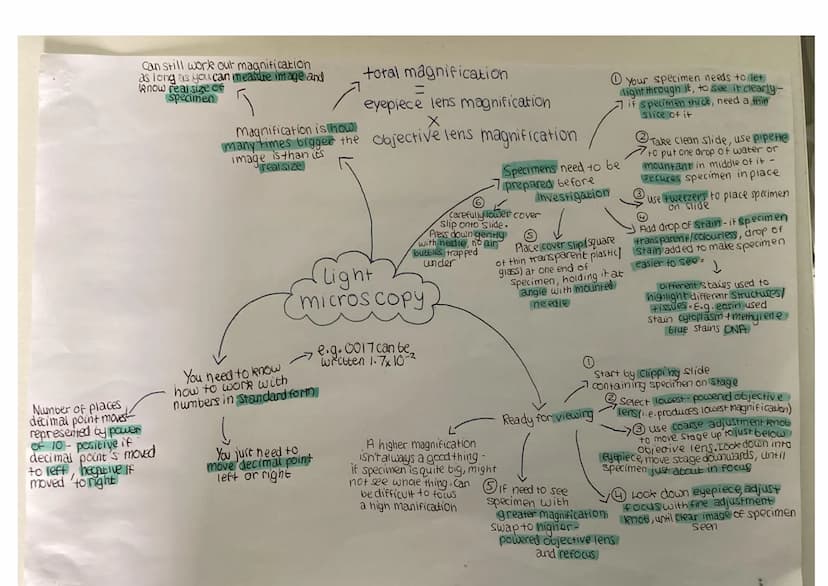 Can still work out magnification
as long as you can measure image and
know real size of
specimen
total magnification
=
eyepiece lens magnification
x
objective lens magnification
Magnification is how
many times bigger the
image is than its
real size
Light
microscopy
Specimens need to be
prepared before
investigation
① Your specimen needs to let
light through it, to see it clearly-
if specimen thick, need a thin
slice of it
② Take clean slide, use pipette
to put one drop of water or
mountant in middle of it -
secures specimen in place
③ use tweezers to place specimen
on slide
④
Add drop of stain - if specimen
transparent/colourless, drop of
stain added to make specimen
easier to see.
Different stains used to
highlight different structures/
tissues. E.g. eosin used
stain cytoplasm + methylene
blue stains DNA
⑤
Place cover slip (square
of thin transparent plastic/
glass) at one end of
specimen, holding it at
angle with mounted
needle
⑥
Carefully lower cover
slip onto slide.
Press down gently
with needle, no air
bubbles trapped
under
You need to know
how to work with
numbers in standard form
e.g. 0017 can be
written 1.7x10⁻²
Number of places
decimal point moves
represented by power
of 10 - positive if
decimal point's moved
to left, negative if
moved to right
You just need to
move decimal point
left or right
Ready for viewing
①
Start by clipping slide
containing specimen on stage
② Select lowest-powered objective
lens (i.e. produces lowest magnification)
③ use coarse adjustment knob
to move stage up to just below
objective lens. Look down into
eyepiece, move stage downwards, until
specimen just about in focus
④ Look down eyepiece, adjust
focus with fine adjustment
knob, until clear image of specimen
seen
⑤ If need to see
specimen with
greater magnification
swap to higher-
powered objective lens
and refocus
A higher magnification
isn't always a good thing -
if specimen is quite big, might
not see whole thing. Can
be difficult to focus
a high manification